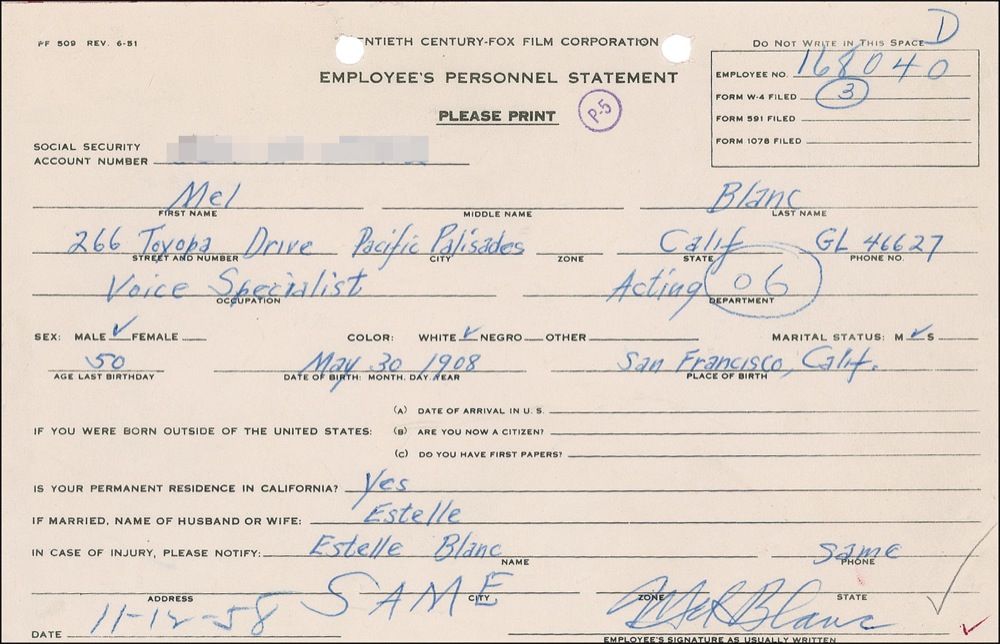 PF 509 REV. 6-51
ENTIETH CENTURY-FOX FILM CORPORATION
D
DO NOT WRITE IN THIS SPACE
EMPLOYEE'S PERSONNEL STATEMENT
EMPLOYEE NO. 168040
FORM W-4 FILED 3
PLEASE PRINT
P-5
FORM 591 FILED
FORM 1078 FILED
SOCIAL SECURITY
ACCOUNT NUMBER
Mel Blanc
FIRST NAME MIDDLE NAME LAST NAME
266 Toyopa Drive Pacific Palisades Calif GL 46627
STREET AND NUMBER CITY ZONE STATE PHONE NO.
Voice Specialist Acting 06
OCCUPATION DEPARTMENT
SEX: MALE ✓ FEMALE COLOR: WHITE ✓ NEGRO OTHER MARITAL STATUS: M ✓ S
50 May 30 1908 San Francisco, Calif.
AGE LAST BIRTHDAY DATE OF BIRTH: MONTH, DAY, YEAR PLACE OF BIRTH
(A) DATE OF ARRIVAL IN U. S.
IF YOU WERE BORN OUTSIDE OF THE UNITED STATES: (B) ARE YOU NOW A CITIZEN?
(C) DO YOU HAVE FIRST PAPERS?
IS YOUR PERMANENT RESIDENCE IN CALIFORNIA? Yes
IF MARRIED, NAME OF HUSBAND OR WIFE: Estelle
IN CASE OF INJURY, PLEASE NOTIFY: Estelle Blanc Same
NAME PHONE
SAME
ADDRESS CITY, ZONE STATE
DATE 11-12-58 Mel Blanc
EMPLOYEE'S SIGNATURE AS USUALLY WRITTEN